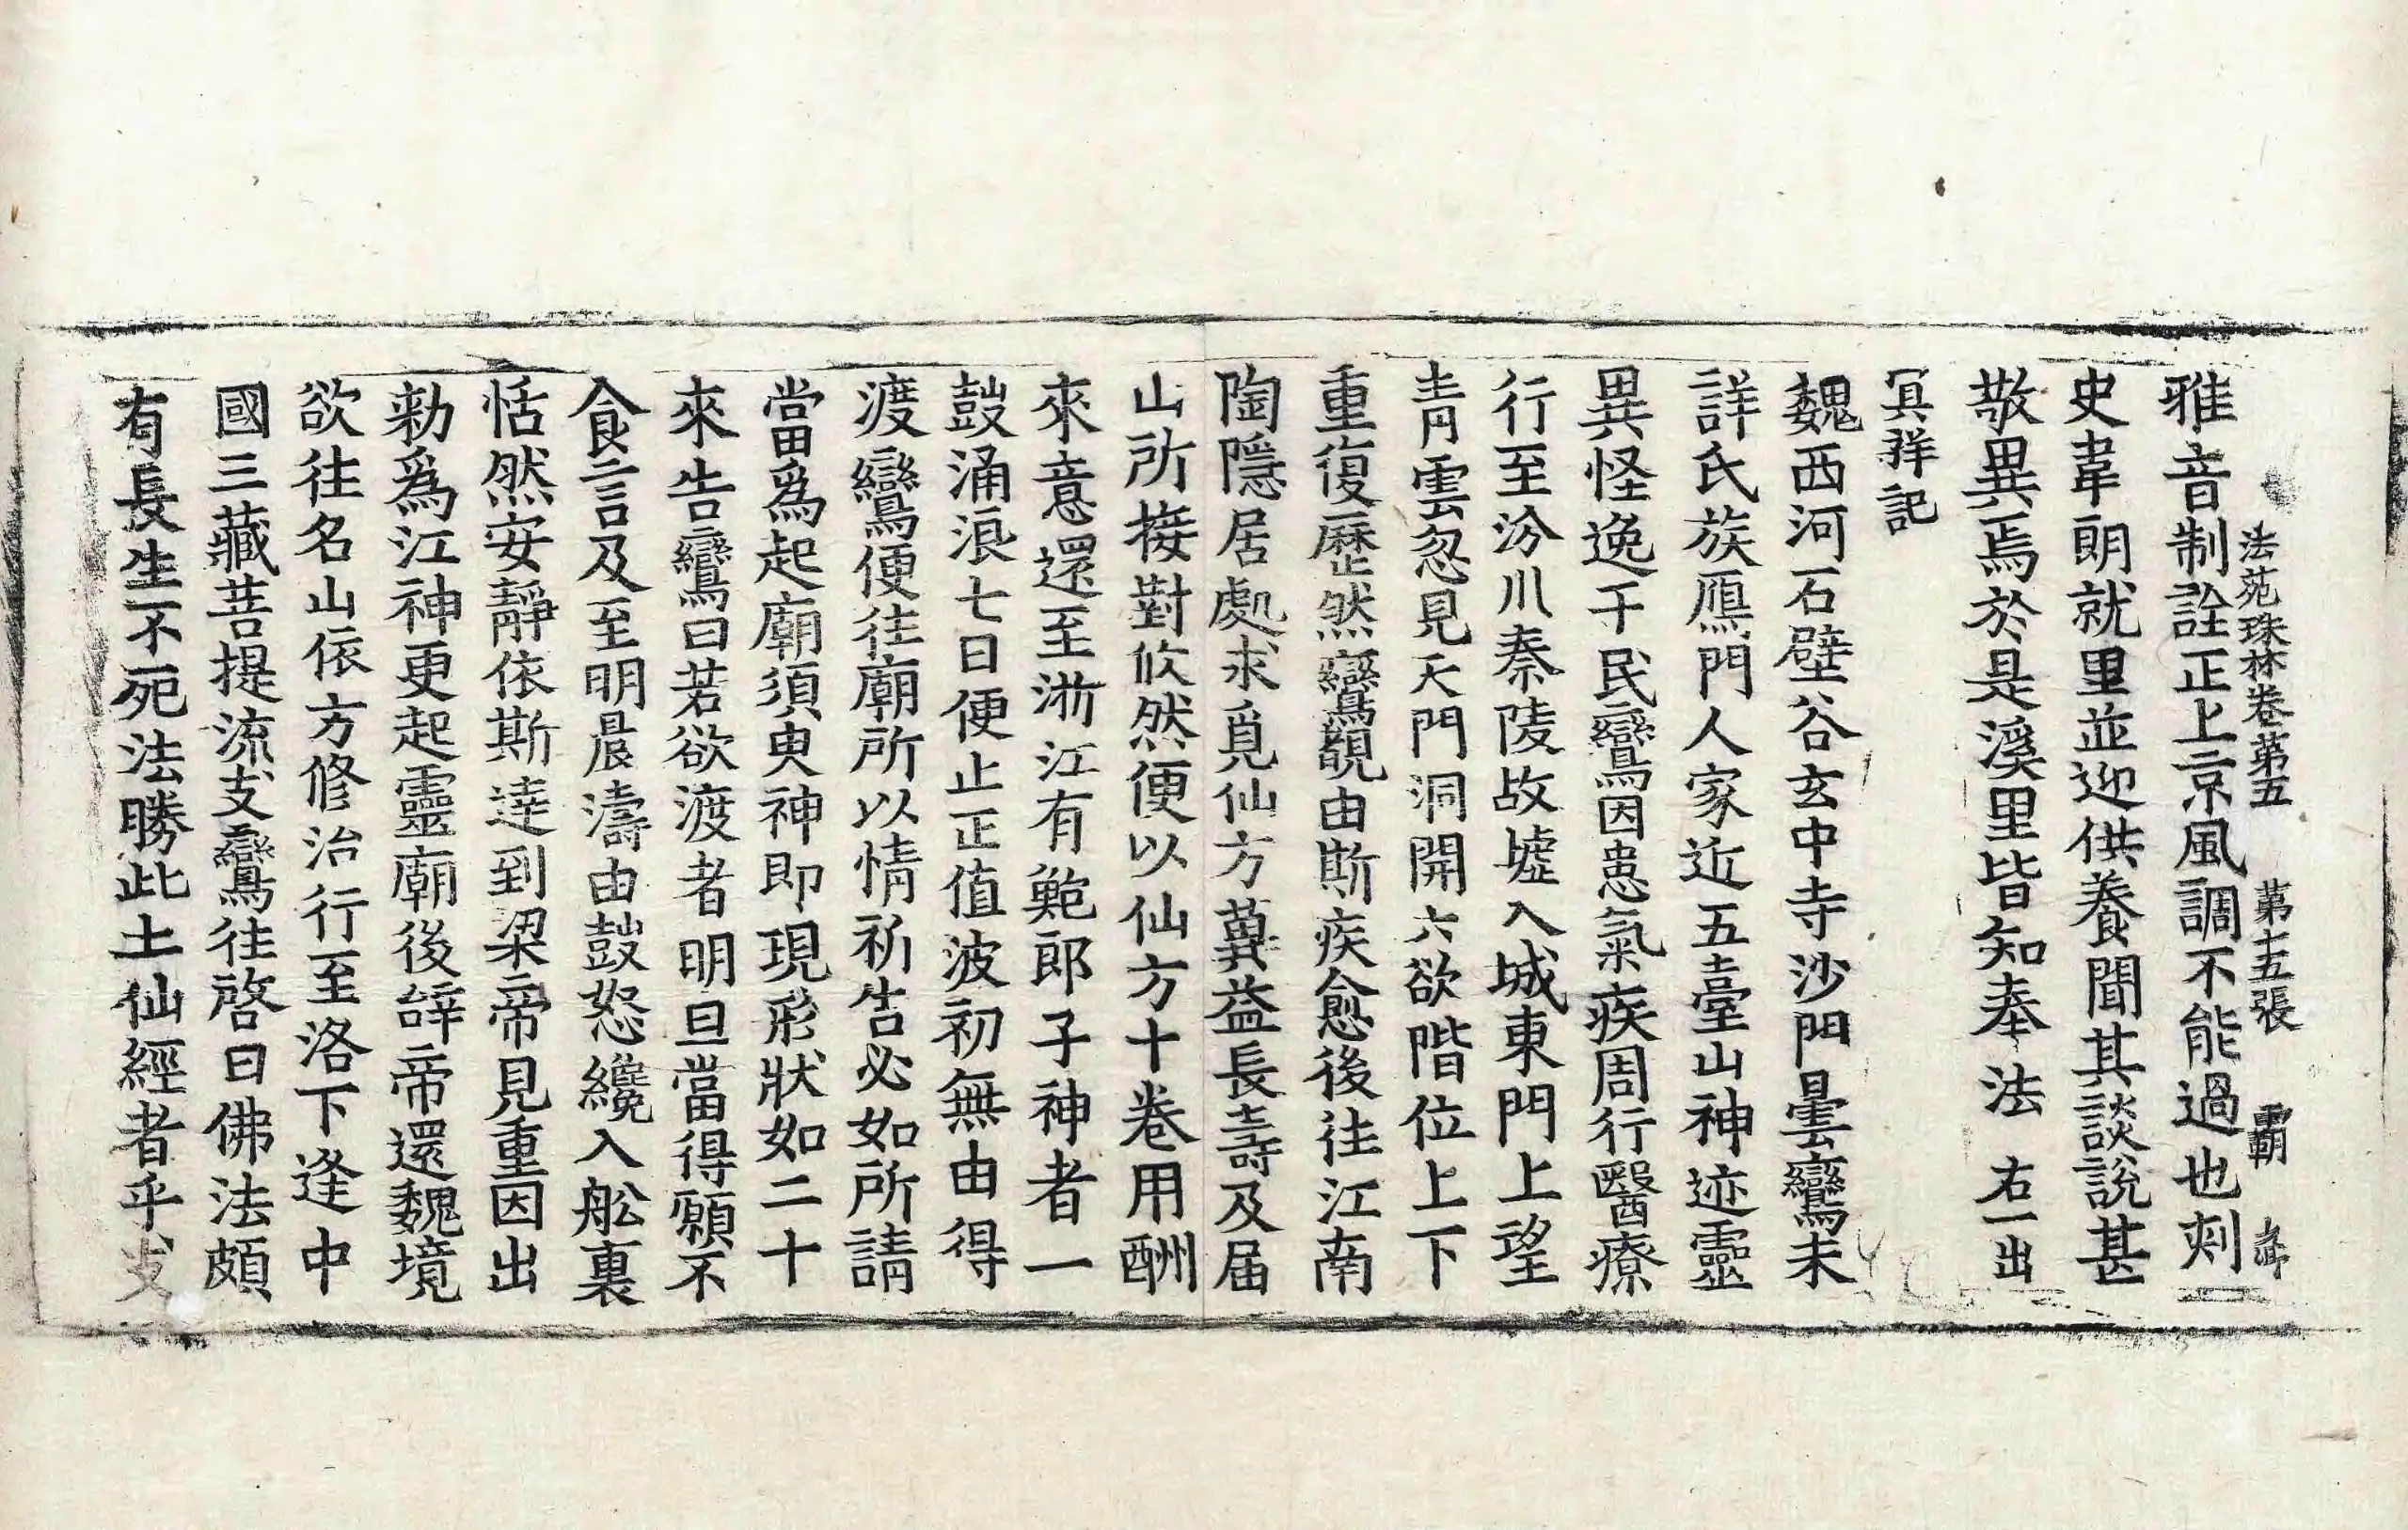 法苑珠林卷第五　第十五張　霸
雅音制詮正上京風調不能過也刾
史韋朗就里並迎供養聞其談說甚
敬異焉於是溪里皆知奉法　右一出
冥祥記
魏西河石壁谷玄中寺沙門曇鸞未
詳氏族鴈門人家近五臺山神迹靈
異怪逸于民鸞因患氣疾周行醫療
行至汾川秦陵故墟入城東門上望
青雲忽見天門洞開六欲階位上下
重復歷然鸞覩由斯疾愈後往江南
陶隱居處求覓仙方冀益長壽及届
山所接對攸然便以仙方十卷用酬
來意還至浙江有鮑郎子神者一
鼓涌浪七日便止正值波初無由得
渡鸞便往廟所以情祈告必如所請
當爲起廟須臾神即現形狀如二十
來告鸞曰若欲渡者明旦當得願不
食言及至明晨濤由鼓怒纔入舩裏
恬然安靜依斯達到梁帝見重因出
勑爲江神更起靈廟後辝帝還魏境
欲往名山依方修治行至洛下逢中
國三藏菩提流支鸞往啓曰佛法頗
有長生不死法勝此土仙經者乎支